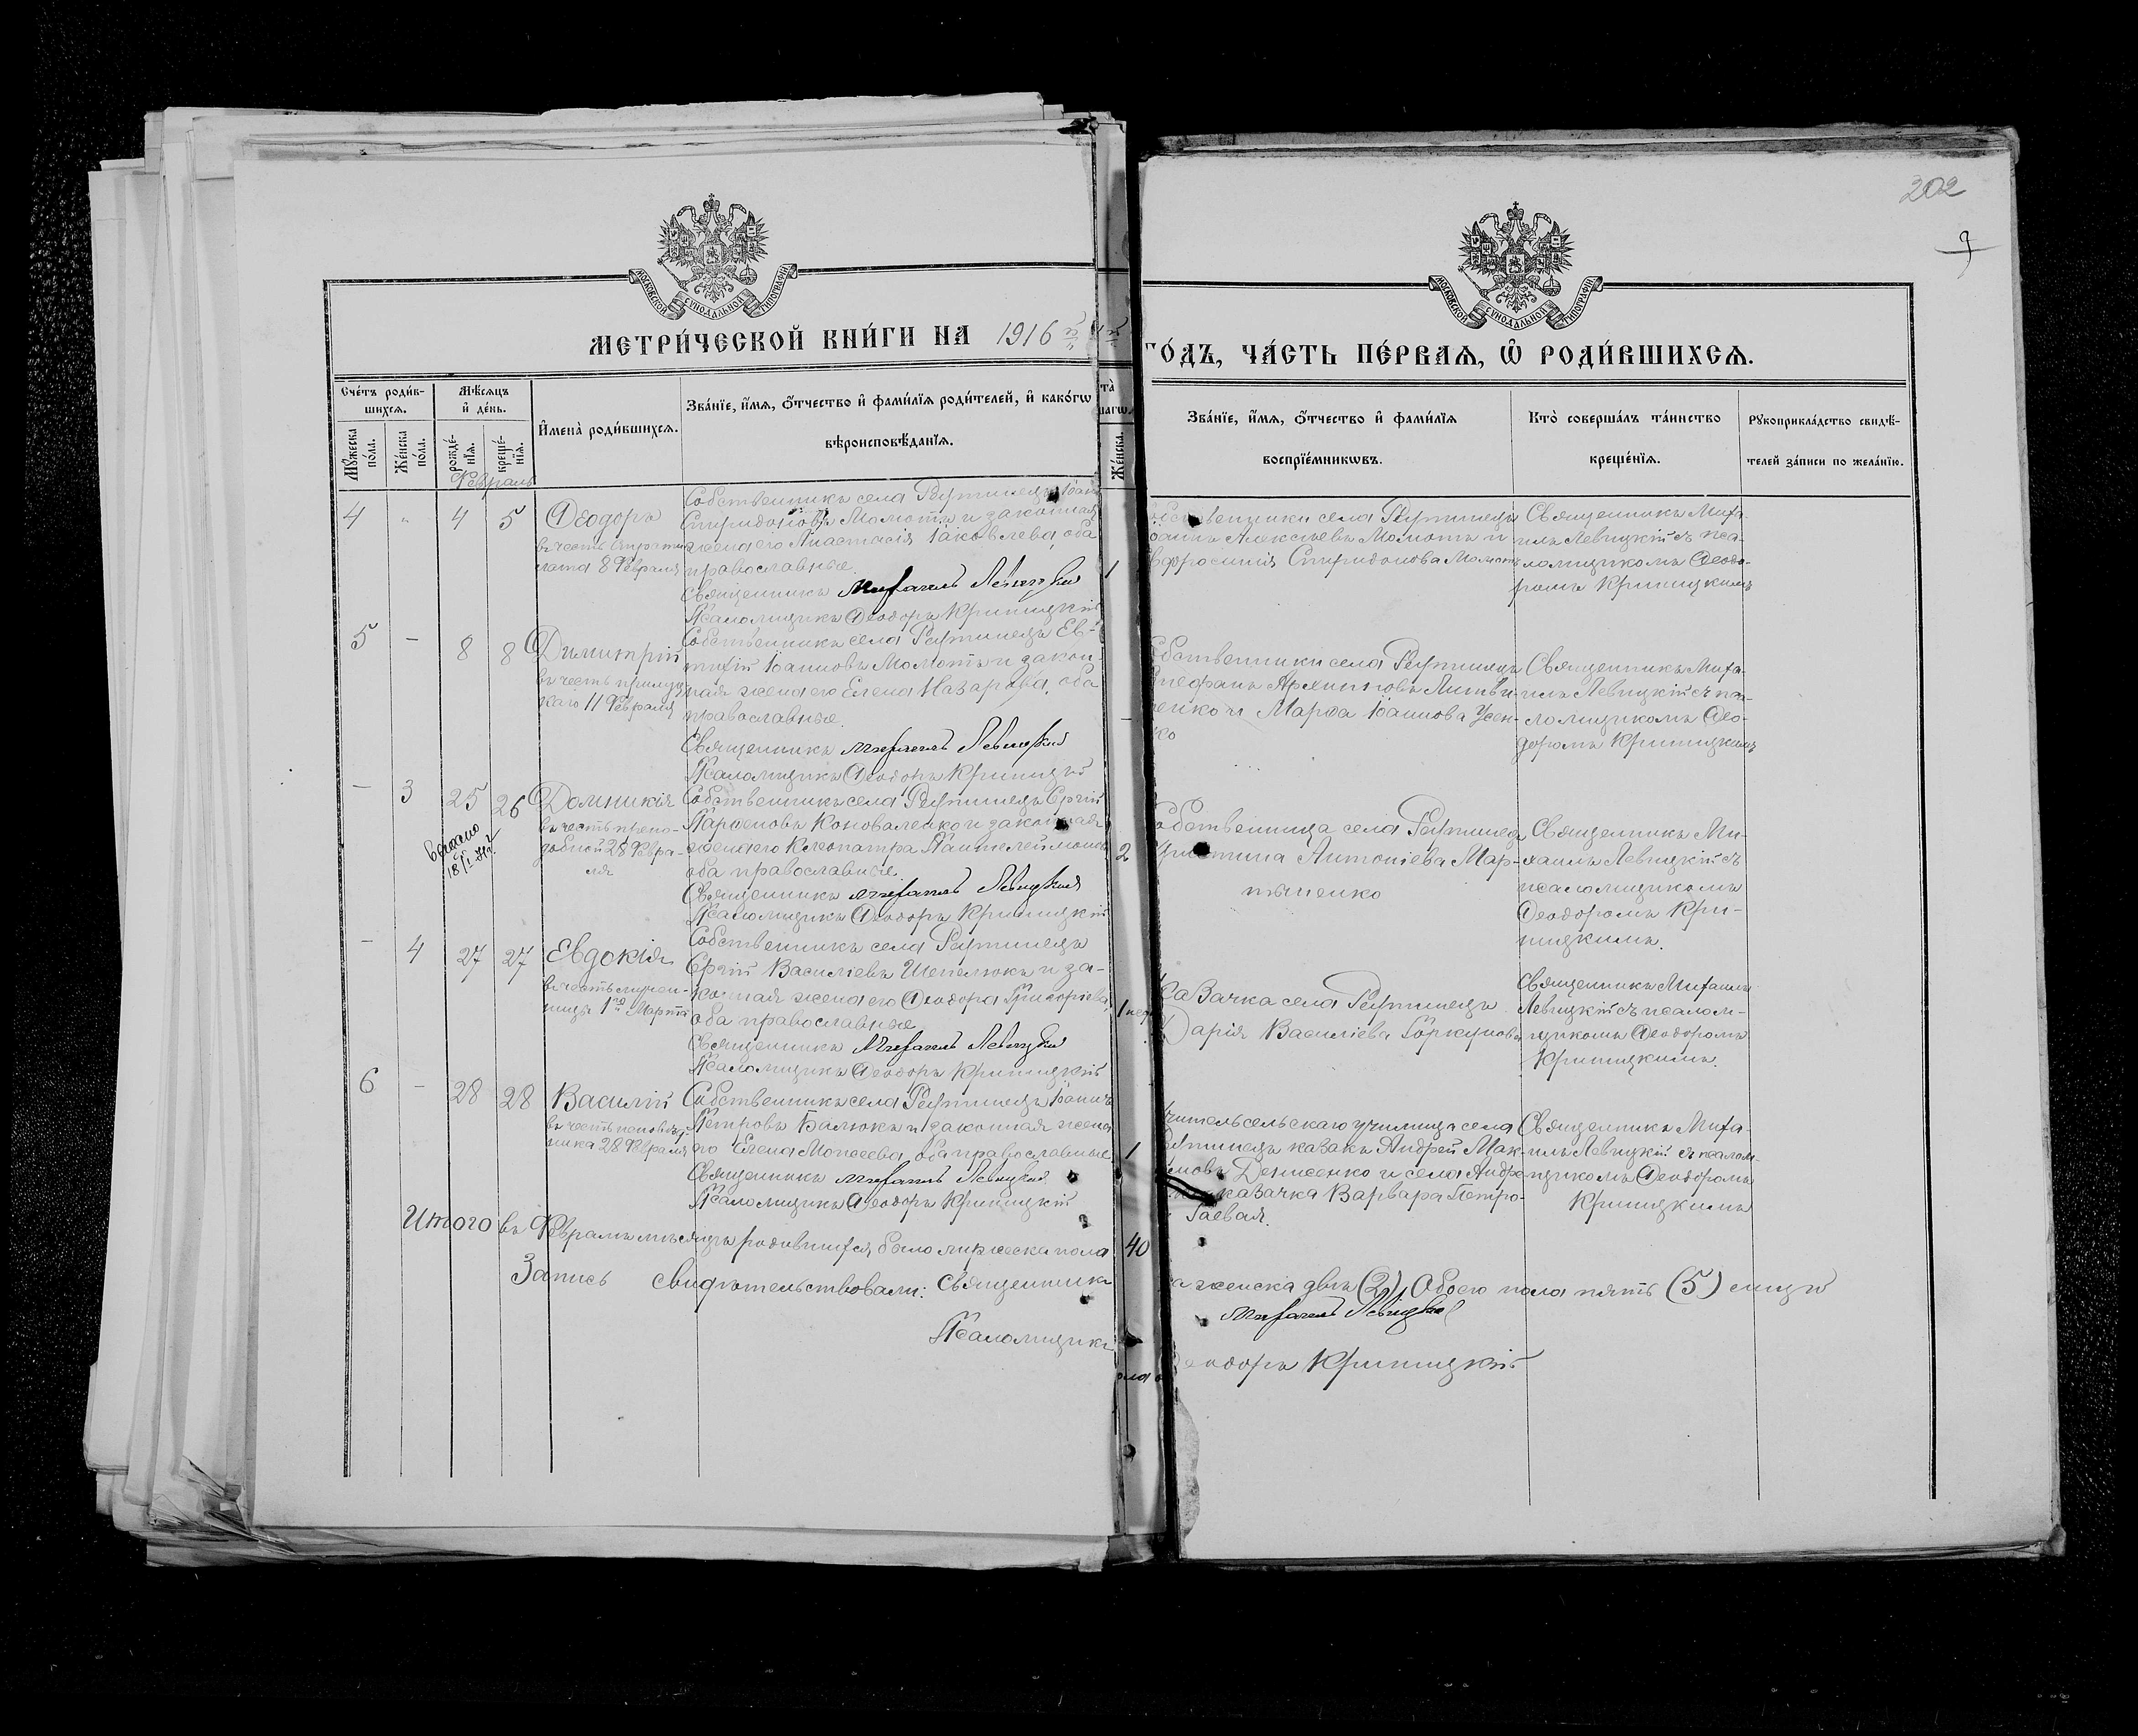 202
9
МОСКОВСКОЙ СѴНОДАЛЬНОЙ ТИПОГРАФІИ
МОСКОВСКОЙ СѴНОДАЛЬНОЙ ТИПОГРАФІИ
МЕТРИ́ЧЕСКОЙ КНИ́ГИ НА 1916 й
ГО́ДЪ, ЧА́СТЬ ПЕ́РВАѦ, Ѡ РОДИ́ВШИХСѦ.
Сче́тъ роди́в-
шихсѧ.
Мꙋ́жеска по́ла.
Же́нска по́ла.
Мѣ́сѧцъ
и҆ де́нь.
рожде́-
нїѧ.
креще́-
нїѧ.
И҆мена̀ роди́вшихсѧ.
Зва́нїе, и҆́мѧ, ѻ҆́тчество и҆ фами́лїѧ роди́телей, и҆ како́гѡ
вѣроисповѣ́данїѧ.
Же́нска.
Зва́нїе, и҆́мѧ, ѻ҆́тчество и҆ фами́лїѧ
воспрїе́мникѡвъ.
Кто̀ соверша́лъ та́инство
креще́нїѧ.
Рꙋкоприкла́дство свидѣ́-
телей за́писи по жела́нїю.
Февраль
4 " 4 5 Ѳеодоръ
въ честь Страти-
лата 8 Февраля
Собственникъ села
Спиридоновъ Момотъ и законная
жена его Анастасія Іаковлева, оба
православные.
Священникъ Михаилъ Левицкій
Псаломщикъ Ѳеодоръ Криницкій
1
Алексѣевъ Момотъ и
Спиридонова Момотъ
Священникъ Миха-
илъ Левицкій съ пса-
ломщикомъ Ѳеодо-
ромъ Криницкимъ
5 - 8 8 Димитрій
въ честь прилуц-
каго 11 Февраля
Собственникъ села Ев-
Іоанновъ Момотъ и закон-
ная жена его Елена Назарова, оба
православные.
Священникъ Михаилъ Левицкій
Псаломщикъ Ѳеодоръ Криницкій
-
Архиповъ Литви-
ненко и Марѳа Іоаннова Усен-
ко
Священникъ Миха-
илъ Левицкій съ пса-
ломщикомъ Ѳео-
доромъ Криницкимъ
- 3 25 26 Домникія
въ честь препо-
добной 28 Февра-
ля
Собственникъ села Сергій
Парѳеновъ Коноваленко и законная
жена его Клеопатра Пантелеймонова
оба православные.
Священникъ Михаилъ Левицкій
Псаломщикъ Ѳеодоръ Криницкій
2
Собственница села
Христина Антоніева Мар-
тыненко
Священникъ Ми-
хаилъ Левицкій съ
псаломщикомъ
Ѳеодоромъ Кри-
ницкимъ.
- 4 27 27 Евдокія
въ честь мучен-
ницы 1го Марта
Собственникъ села
Сергій Василіевъ Шепелюкъ и за-
конная жена его Ѳеодора Григоріева,
оба православные
Священникъ Михаилъ Левицкій
Псаломщикъ Ѳеодоръ Криницкій
Казачка села
Дарія Василіева
Священникъ Михаилъ
Левицкій съ псалом-
щикомъ Ѳеодоромъ
Криницкимъ.
6 - 28 28 Василій
въ честь исповѣд-
ника 28 Февраля
Собственникъ села Іоаннъ
Петровъ Балюкъ и законная жена
его Елена Моисеева, оба православные.
Священникъ Михаилъ Левицкій
Псаломщикъ Ѳеодоръ Криницкій
1
Учитель сельскаго училища села
казакъ Андрей Мак-
симовъ Денисенко и села Андре-
казачка Варвара Петро-
Гаевая.
Священникъ Миха-
илъ Левицкій съ псалом-
щикомъ Ѳеодоромъ
Криницкимъ
Итого въ Февралѣ мѣсяцѣ родившихся было мужеска пола
40
женска два (2), Обоего пола пять (5) лицъ
Запись свидѣтельствовали: Священникъ
Михаилъ Левицкій
Псаломщикъ
Ѳеодоръ Криницкій